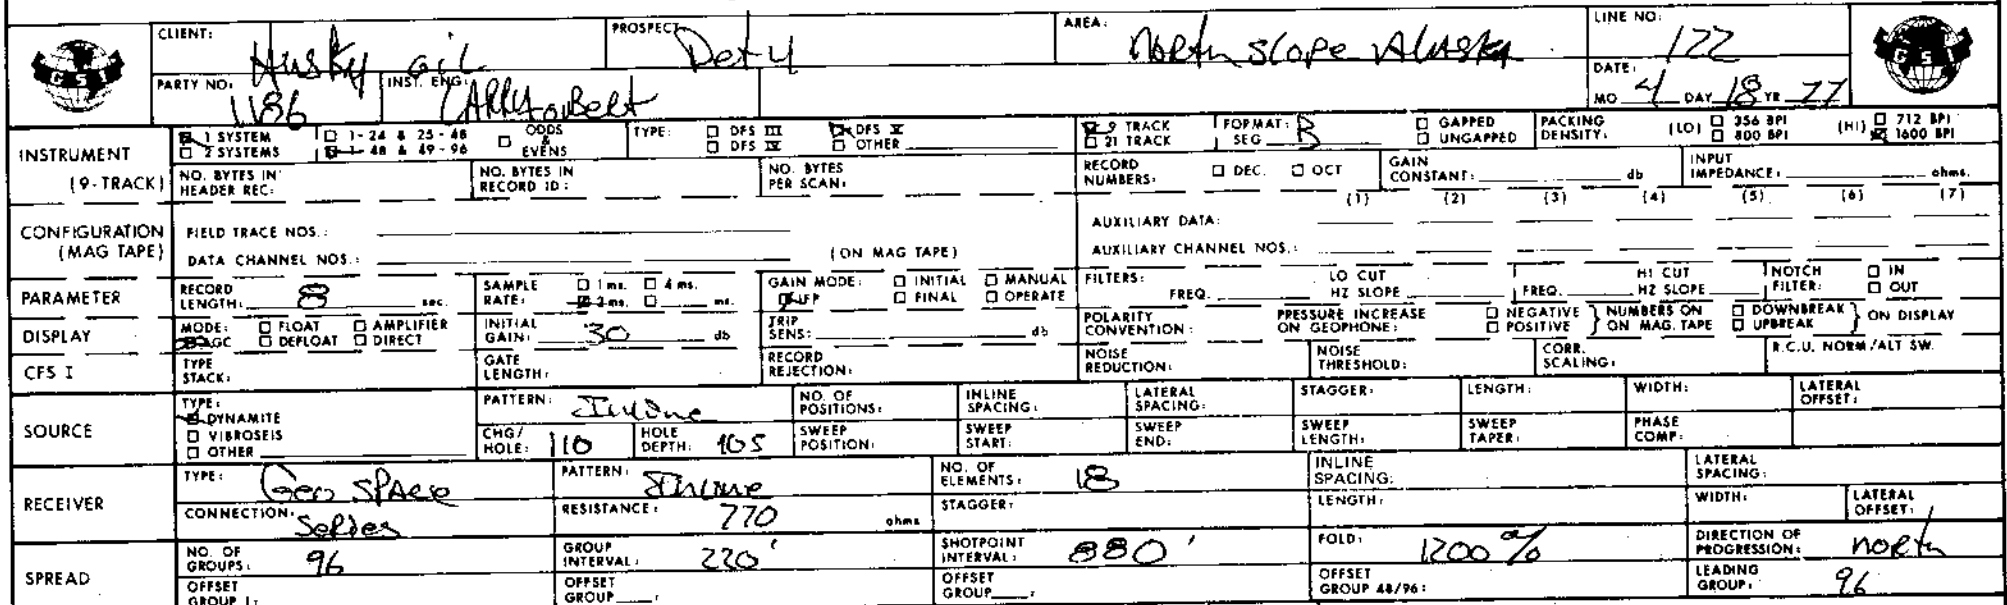 CLIENT: Husky oil PROSPECT: Det 4 AREA: North Slope Alaska LINE NO: 122
PARTY NO: 1186 INST. ENG: DATE: MO 4 DAY 18 YR 77
GSI GSI
INSTRUMENT (9-TRACK) 1 SYSTEM 1-24 & 25-48 ODDS & EVENS TYPE: DFS III DFS V 9 TRACK FORMAT: SEG B GAPPED PACKING DENSITY: (LO) 356 BPI (HI) 712 BPI
2 SYSTEMS 1-48 & 49-96 DFS IV OTHER 21 TRACK UNGAPPED 800 BPI 1600 BPI
NO. BYTES IN HEADER REC: NO. BYTES IN RECORD ID: NO. BYTES PER SCAN: RECORD NUMBERS: DEC. OCT GAIN CONSTANT: db INPUT IMPEDANCE: ohms.
(1) (2) (3) (4) (5) (6) (7)
CONFIGURATION (MAG TAPE) FIELD TRACE NOS.: AUXILIARY DATA:
DATA CHANNEL NOS.: (ON MAG TAPE) AUXILIARY CHANNEL NOS.:
PARAMETER RECORD LENGTH: 8 sec. SAMPLE RATE: 1 ms. 4 ms. 2 ms. ms. GAIN MODE: INITIAL MANUAL IFP FINAL OPERATE FILTERS: FREQ. LO CUT HZ SLOPE FREQ. HI CUT HZ SLOPE NOTCH FILTER: IN OUT
DISPLAY MODE: FLOAT AMPLIFIER AGC DEFLOAT DIRECT INITIAL GAIN: 30 db TRIP SENS: db POLARITY CONVENTION: PRESSURE INCREASE ON GEOPHONE: NEGATIVE POSITIVE } NUMBERS ON ON MAG. TAPE DOWNBREAK UPBREAK } ON DISPLAY
CFS I TYPE STACK: GATE LENGTH: RECORD REJECTION: NOISE REDUCTION: NOISE THRESHOLD: CORR. SCALING: R.C.U. NORM/ALT SW.
SOURCE TYPE: DYNAMITE VIBROSEIS OTHER PATTERN: Inline NO. OF POSITIONS: INLINE SPACING: LATERAL SPACING: STAGGER: LENGTH: WIDTH: LATERAL OFFSET:
CHG/HOLE: 110 HOLE DEPTH: 105 SWEEP POSITION: SWEEP START: SWEEP END: SWEEP LENGTH: SWEEP TAPER: PHASE COMP:
RECEIVER TYPE: Geo Space PATTERN: Inline NO. OF ELEMENTS: 18 INLINE SPACING: LATERAL SPACING:
CONNECTION: Series RESISTANCE: 770 ohms STAGGER: LENGTH: WIDTH: LATERAL OFFSET:
SPREAD NO. OF GROUPS: 96 GROUP INTERVAL: 220' SHOTPOINT INTERVAL: 880' FOLD: 1200% DIRECTION OF PROGRESSION: North
OFFSET GROUP 1: OFFSET GROUP : OFFSET GROUP : OFFSET GROUP 48/96: LEADING GROUP: 96